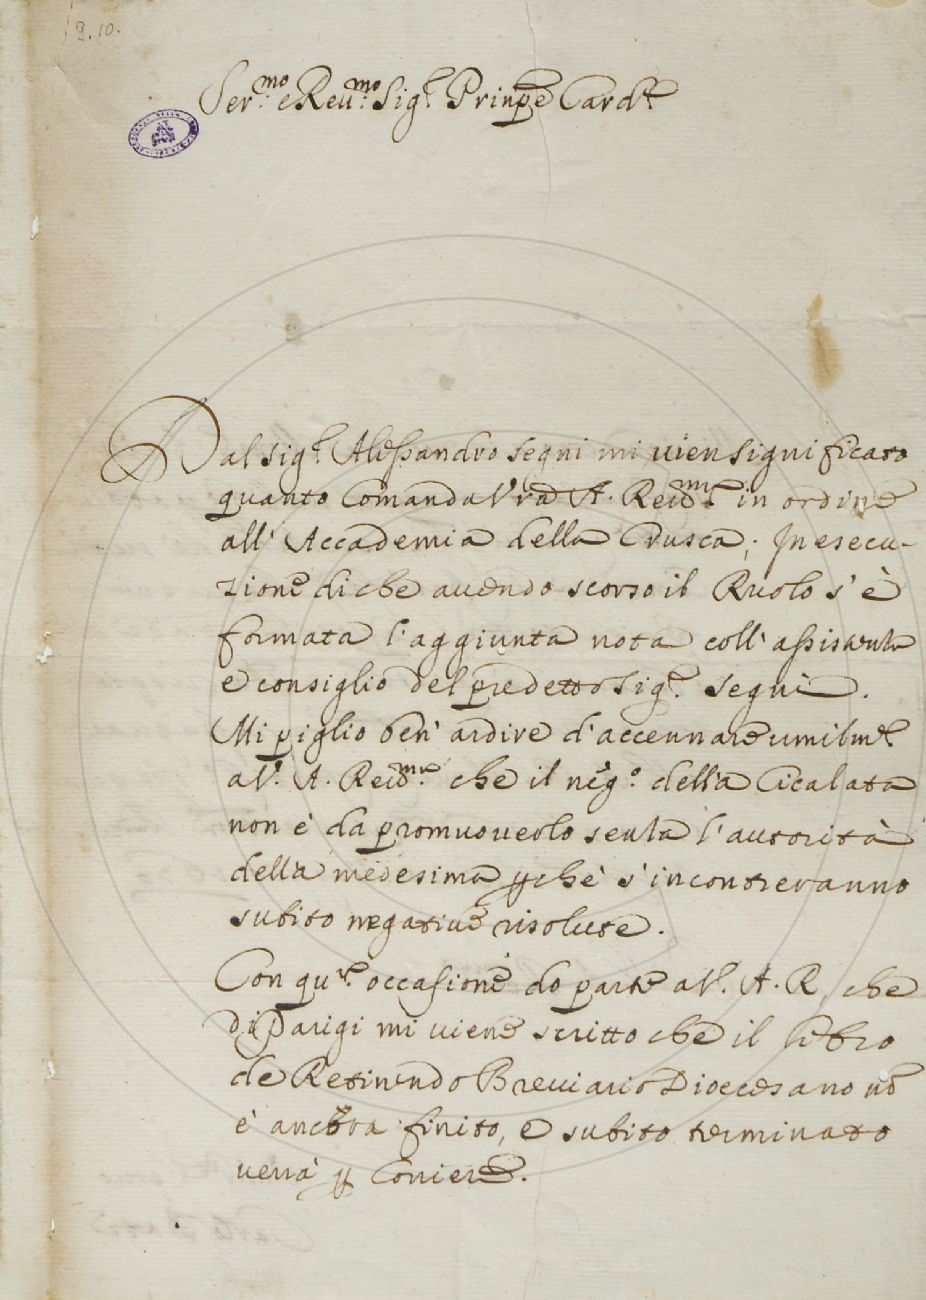 9.10.
Ser.mo e Reu.mo Sig.r Prinpe Card.le
Dal Sig.r Alessandro Segni mi vien significato
quanto Comanda V.ra A. Reu.ma in ordine
all' Accademia della Crusca; In esecu-
zione di che auendo scorso il Ruolo s'è
formata l'aggiunta nota coll' assistenza
e consiglio del predetto Sig.r Segni.
Mi piglio ben' ardire d'accennare umilm.te
a V. A. Reu.ma che il neg.o della Cicalata
non è da promuouerlo senza l'autorità
della medesima pchè s'incontreranno
subito negatiue risolute.
Con qu.ta occasione do parte a V. A. R. che
di Parigi mi viene scritto che il libro
de Retinendo Breuiario Diocesano nō
è ancora finito, e subito terminato
uerrà p Coriere.